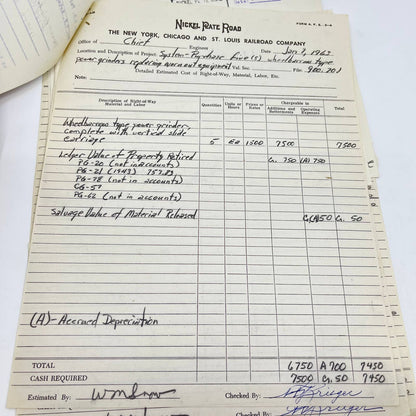 NICKEL PLATE ROAD
FORM A. F. E. 2-A
THE NEW YORK, CHICAGO AND ST. LOUIS RAILROAD COMPANY
Office of Chief Engineer Date Jan. 1, 1963
Location and Description of Project: System - Purchase five (5) wheelbarrow type
power grinders replacing worn out equipment Val. Sec. File 900.201
Detailed Estimated Cost of Right-of-Way, Material, Labor, Etc.
Note:
Description of Right-of-Way Material and Labor Quantities Units or Hours Prices or Rates Chargeable to Additions and Betterments Operating Expenses Total
Wheelbarrow type power grinders,
complete with vertical slide
carriage 5 ea 1500 7500 7500
Ledger Value of Property Retired Cr. 750 (A) 750
PG-20 (not in accounts)
PG-21 (1943) 757.83
PG-78 (not in accounts)
CG-57
PG-62 (not in accounts)
Salvage Value of Material Released Cr. (A) 50 Cr. 50
(A) - Accrued Depreciation
TOTAL 6750 A 700 7450
CASH REQUIRED 7500 Cr. 50 7450
Estimated By: Checked By: